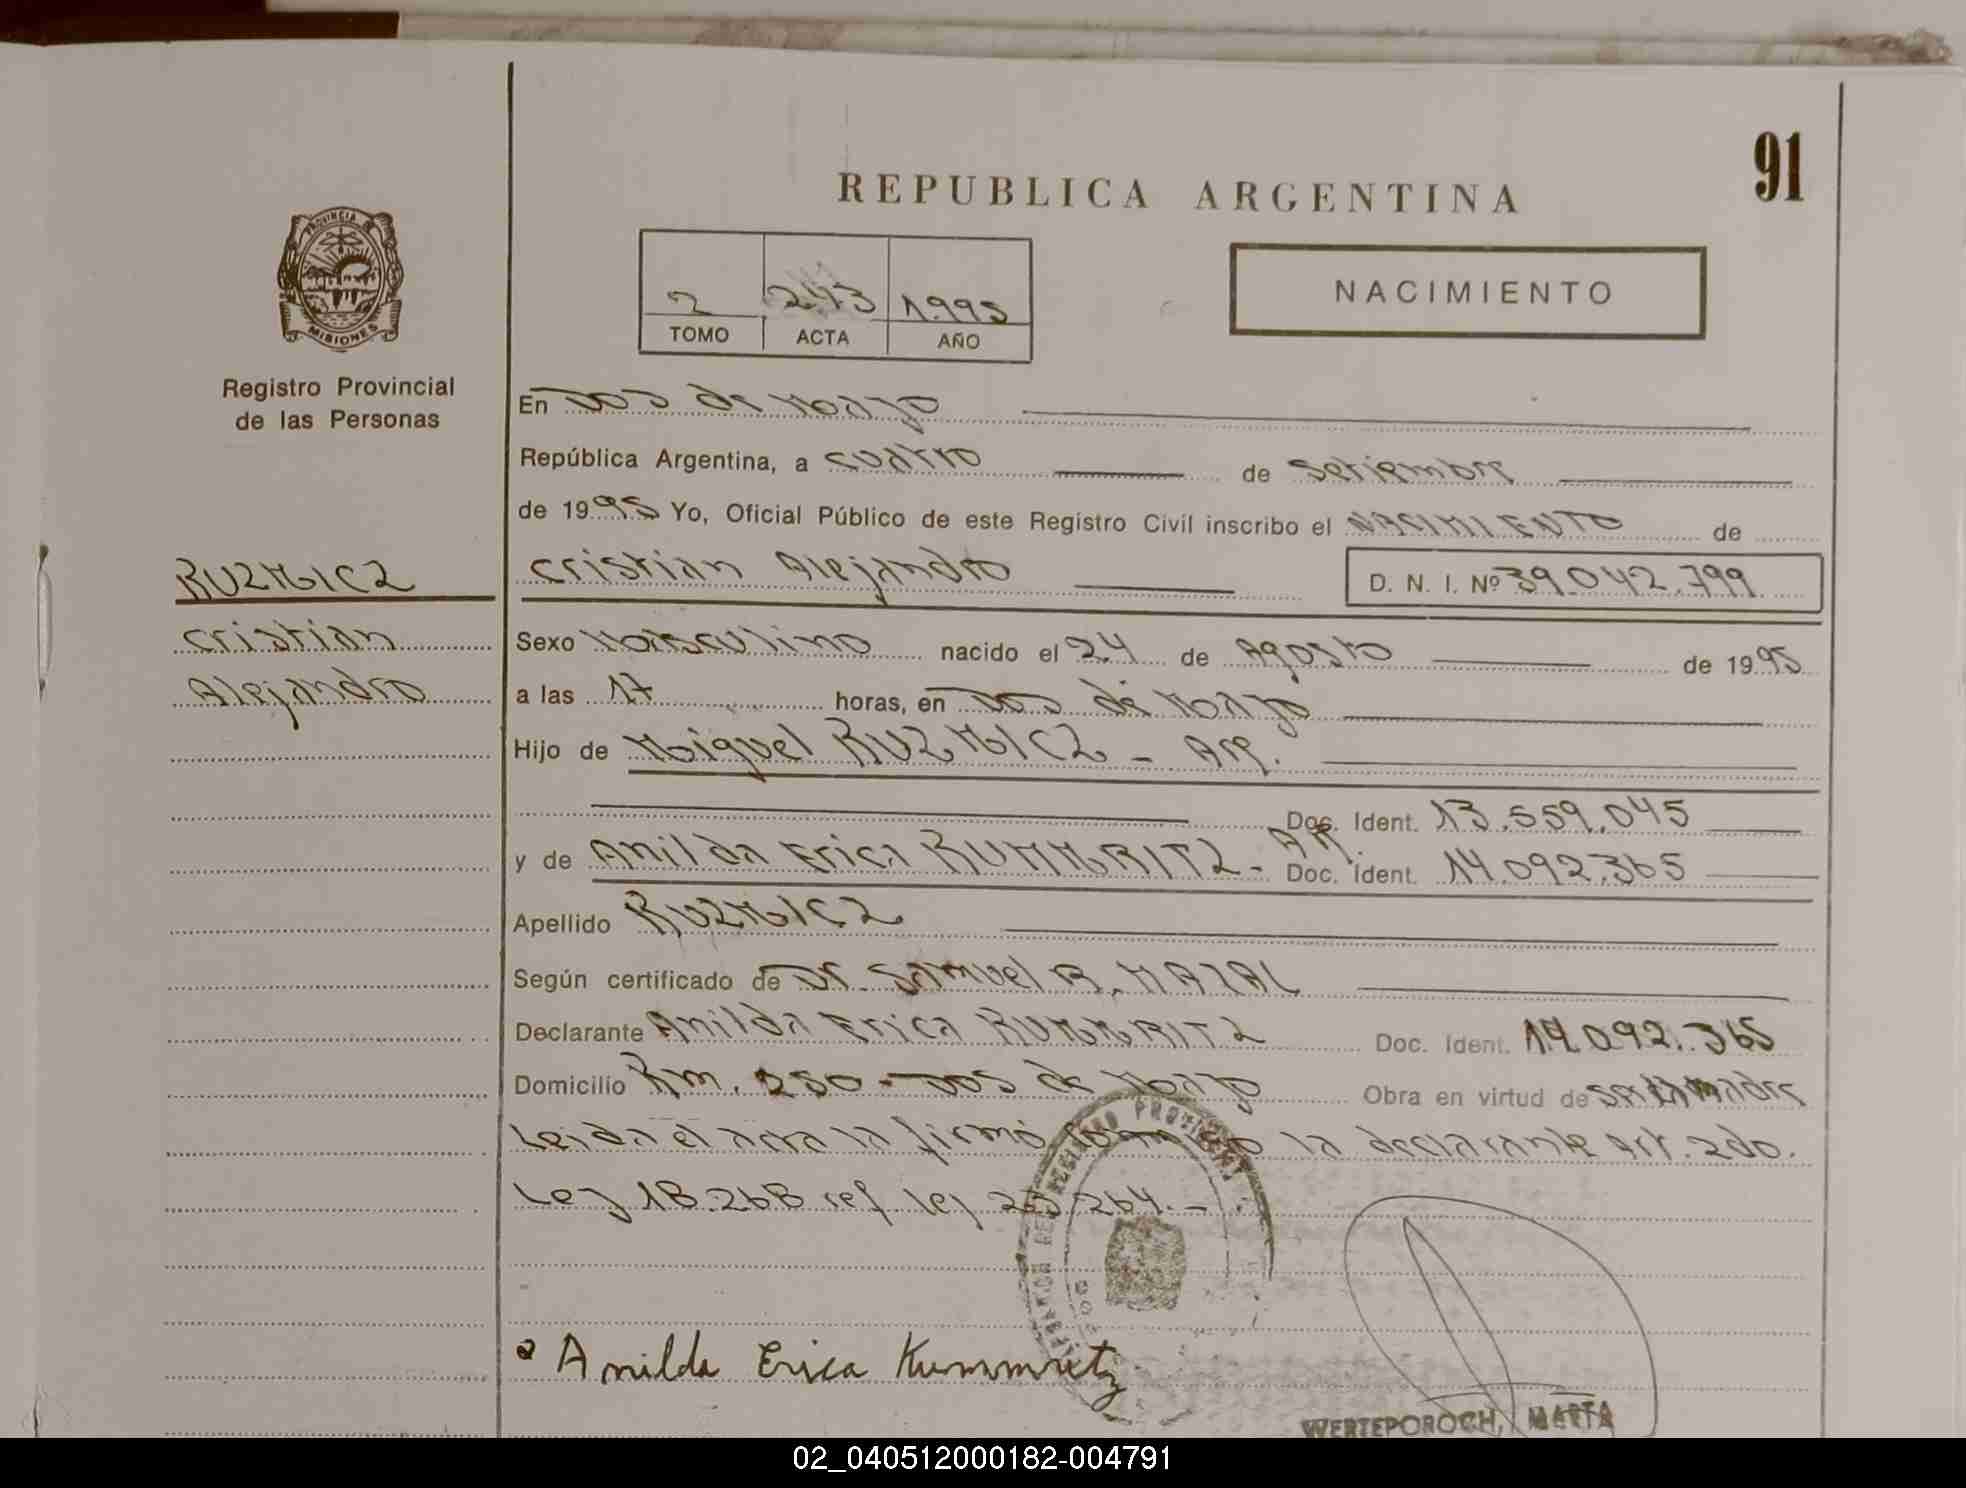 91
REPUBLICA ARGENTINA
PROVINCIA
MISIONES
NACIMIENTO
2 243 1.995
TOMO ACTA AÑO
Registro Provincial
de las Personas
En Dos de Mayo
República Argentina, a cuatro de setiembre
de 1995 Yo, Oficial Público de este Registro Civil inscribo el NACIMIENTO de
Cristian Alejandro D. N. I. Nº 39.042.799
Sexo Masculino nacido el 24 de Agosto de 1995
a las 17 horas, en Dos de Mayo
Hijo de Miguel KUZMICZ - Arg.
Doc. Ident. 13.559.045
y de Anilda Erica KUMMRITZ - Ar. Doc. Ident. 14.092.365
Apellido KUZMICZ
Según certificado de Dr. Samuel MAZAL
Declarante Anilda Erica KUMMRITZ Doc. Ident. 14.092.365
Domicilio Km. 250 - Dos de Mayo Obra en virtud de ser la madre
Leida el acta la firmó conmigo la declarante Art. 2do.
Ley 18.268 ref ley 23.264.-
KUZMICZ
Cristian
Alejandro
Anilda Erica Kummritz
WERTEPOROCH, MARTA
02_040512000182-004791